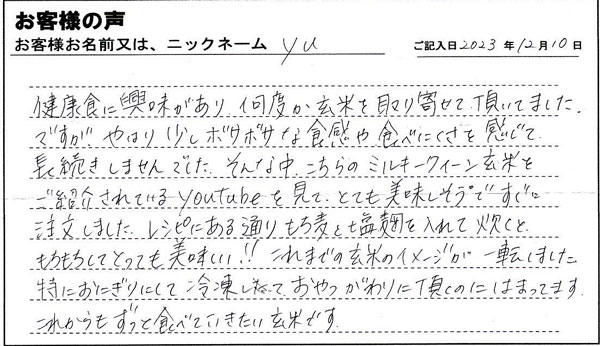 お客様の声
お客様お名前又は、ニックネーム yu ご記入日2023年12月10日
健康食に興味があり、何度か玄米を取り寄せて頂いてました。
ですが やはり少しボサボサな食感や食べにくさを感じて、
長続きしませんでした。そんな中、こちらのミルキークィーン玄米を
ご紹介されているyoutubeを見て、とても美味しそうで すぐに
注文しました。レシピにある通り もち麦と塩麹を入れて 炊くと、
もちもちしてとっても美味しい!! これまでの玄米のイメージが 一転しました。
特におにぎりにして 冷凍しておいて おやつがわりに頂くのに はまってます。
これからもずっと食べていきたい玄米です。